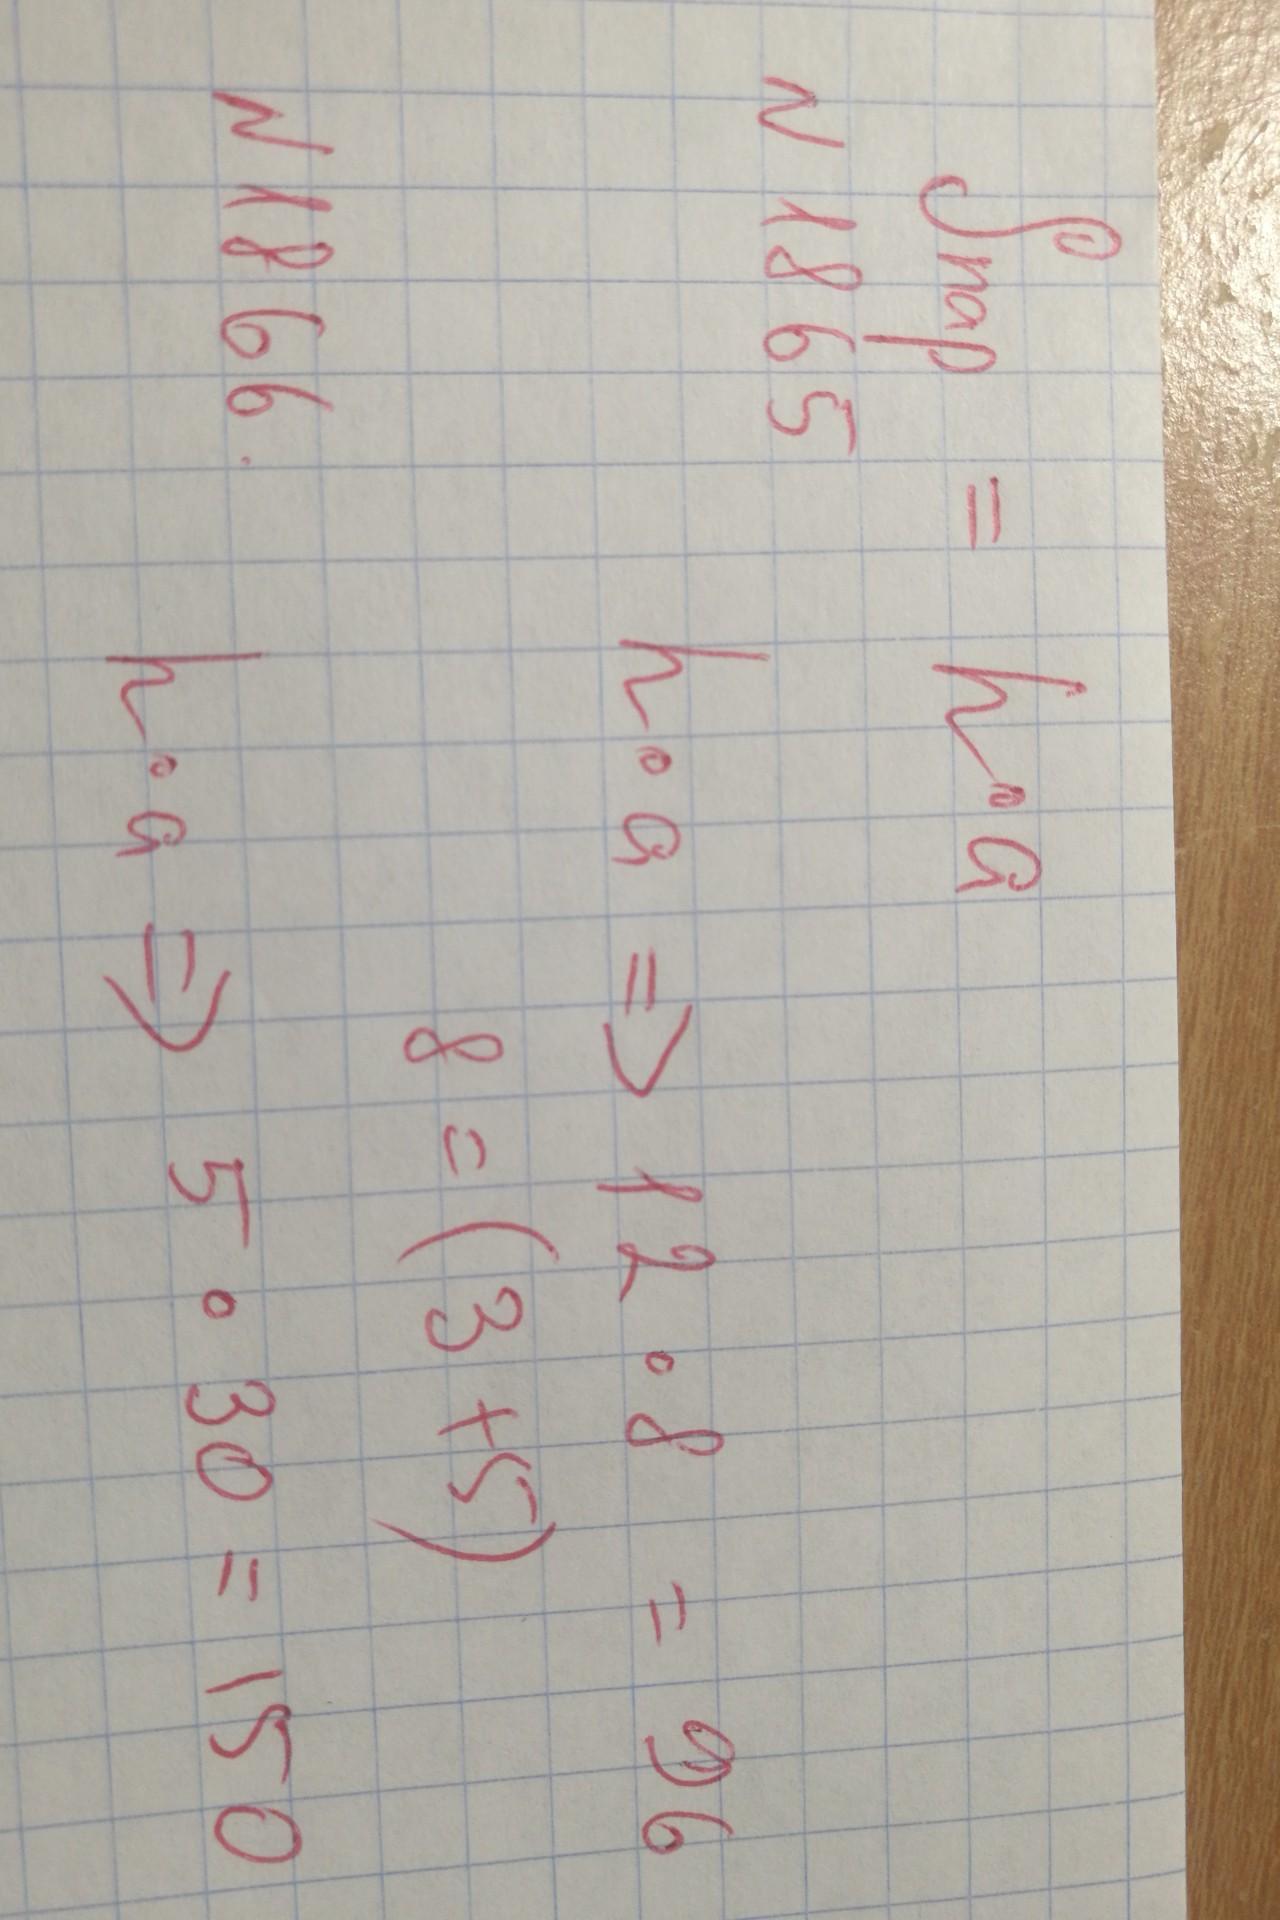 Sпар = h·a
N 1865
h·a ⇒ 12·8 = 96
8 = (3+5)
N 1866.
h·a ⇒ 5·30 = 150